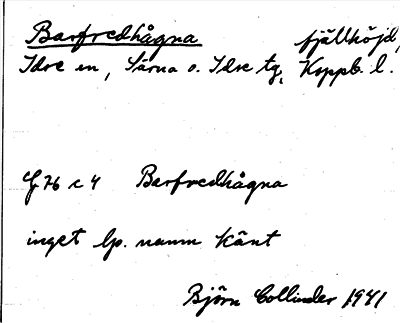 Barfredhågna fjällhöjd,
Idre sn, Särna o. Idre tg, Koppb. l.
G 76 c 4 Barfredhågna
inget lp. namn känt
Björn Collinder 1941